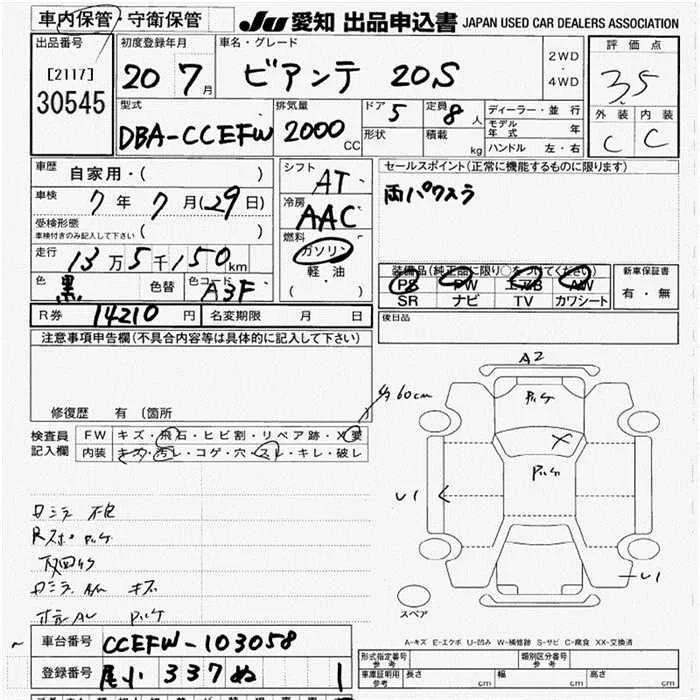 車内保管・守衛保管
JU 愛知 出品申込書 JAPAN USED CAR DEALERS ASSOCIATION
出品番号
[2117]
30545
初度登録年月
20 7月
車名・グレード
ビアンテ 20S
2WD
・
4WD
評価点
3.5
外装 内装
C C
型式
DBA-CCEFW
排気量
2000 CC
ドア 5
形状
定員 8人
積載 kg
ディーラー・並行
モデル年式 年
ハンドル 左・右
車歴
自家用・( )
車検
7年 7月(29日)
受検形態
車検付きのみ記入して下さい ( )
走行
13万5千150km
色 黒 色替 色コード A3F
シフト
AT
冷房
AAC
燃料
ガソリン
軽油
( )
セールスポイント(正常に機能するものに限ります)
両パワスラ
装備品(純正品に限り○をつけてください)
PS PW エアB AW
SR ナビ TV カワシート
新車保証書
有・無
R券 14210円 名変期限 月 日
後日品
注意事項申告欄(不具合内容等は具体的に記入して下さい)
修復歴 有(箇所 )
検査員
記入欄
FW キズ・飛石・ヒビ割・リペア跡・X要
内装 キズ・汚レ・コゲ・穴・スレ・キレ・破レ
60cm
A2
X
U1
U1
スペア
A-キズ E-エクボ U-凹み W-補修跡 S-サビ C-腐食 XX-交換済
車台番号 CCEFW-103058
登録番号 尾小 337ぬ 1
形式指定番号
参考
類別区分番号
参考
車庫証明用
参考
長さ cm 幅 cm 高さ cm